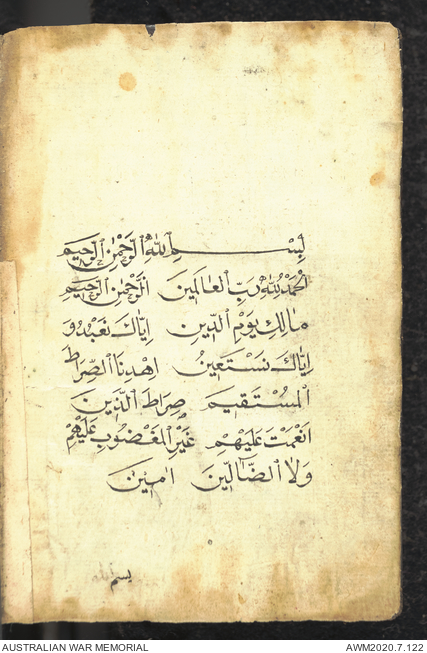 بِسْمِ اللهِ الرَّحْمٰنِ الرَّحِيمِ
اَلْحَمْدُ لِلّٰهِ رَبِّ الْعَالَمِينَ الرَّحْمٰنِ الرَّحِيمِ
مَالِكِ يَوْمِ الدِّينِ اِيَّاكَ نَعْبُدُ وَ
اِيَّاكَ نَسْتَعِينُ اِهْدِنَا الصِّرَاطَ
الْمُسْتَقِيمَ صِرَاطَ الَّذِينَ
اَنْعَمْتَ عَلَيْهِمْ غَيْرِ الْمَغْضُوبِ عَلَيْهِمْ
وَلَا الضَّالِّينَ اٰمِينَ
بسم الله
AUSTRALIAN WAR MEMORIAL AWM2020.7.122